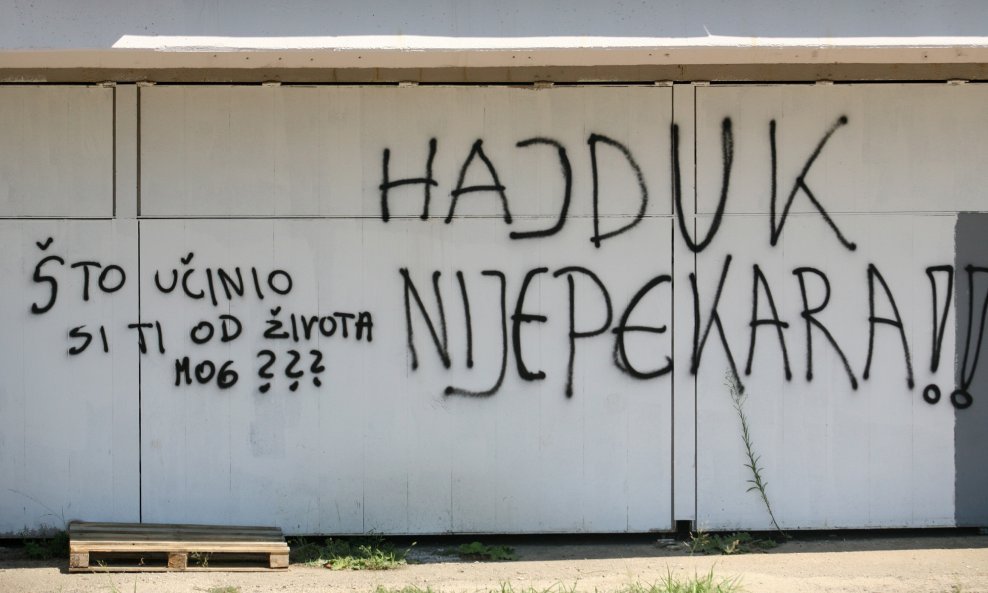 ŠTO UČINIO
SI TI OD ŽIVOTA
MOG ???
HAJDUK
NIJE PEKARA!!